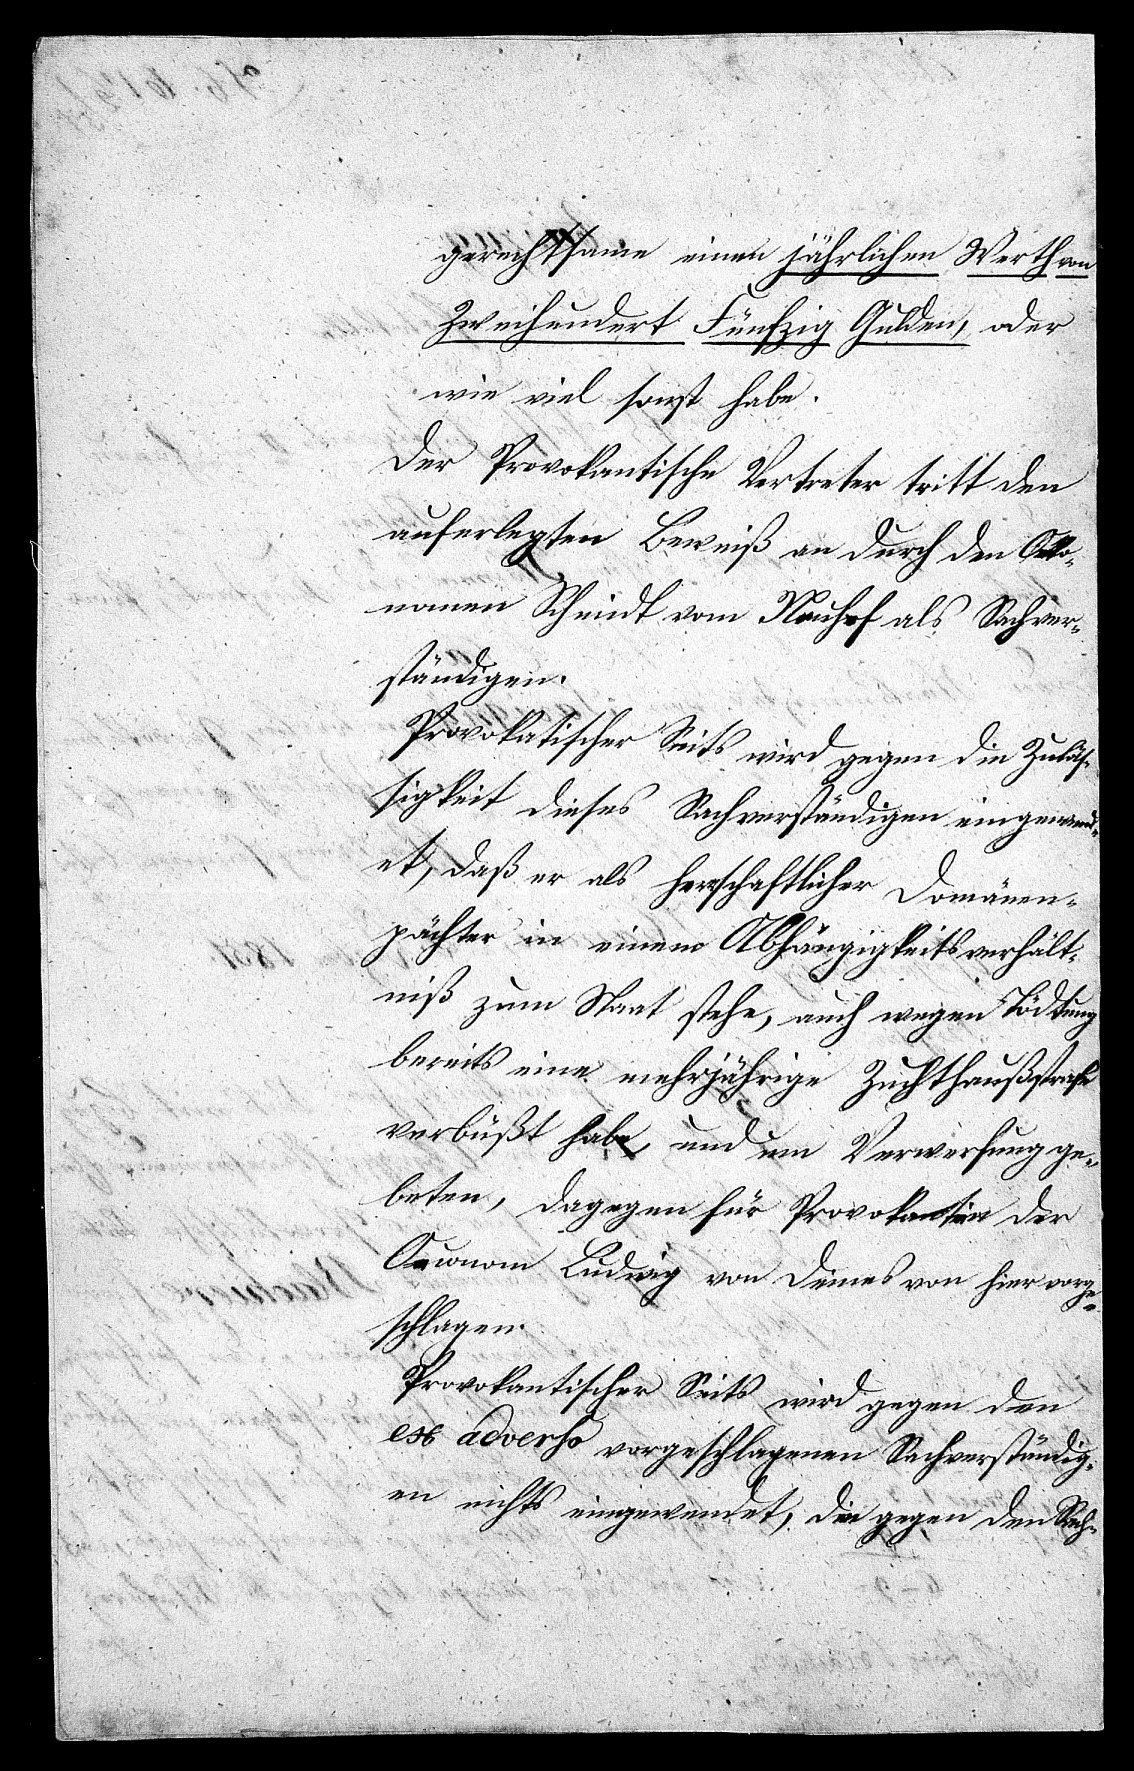 gerechtsame einen jährlichen Werth von
Zweihundert Fünfzig Gulden, oder
wie viel sonst habe.
Der Provokantische Vertreter tritt den
auferlegten Beweiß an durch den Oko-
nomen Schmidt vom Neuhof als Sachver-
ständigen.
Provokatischer Seits wird gegen die Zuläs-
sigkeit dieses Sachverständigen eingewend-
et, daß er als herrschaftlicher Domänen-
pächter in einem Abhängigkeitsverhält-
niß zum Staat stehe, auch wegen Tödtung
bereits eine mehrjährige Zuchthaußstrafe
verbüßt habe, und um Verwerfung ge-
beten, dagegen für Provokaten der
Oeconom Ludwig von Dimes von hier vorge-
schlagen.
Provokantischer Seits wird gegen den
ex adverso vorgeschlagenen Sachverständig-
en nichts eingewendet, die gegen den Sach-